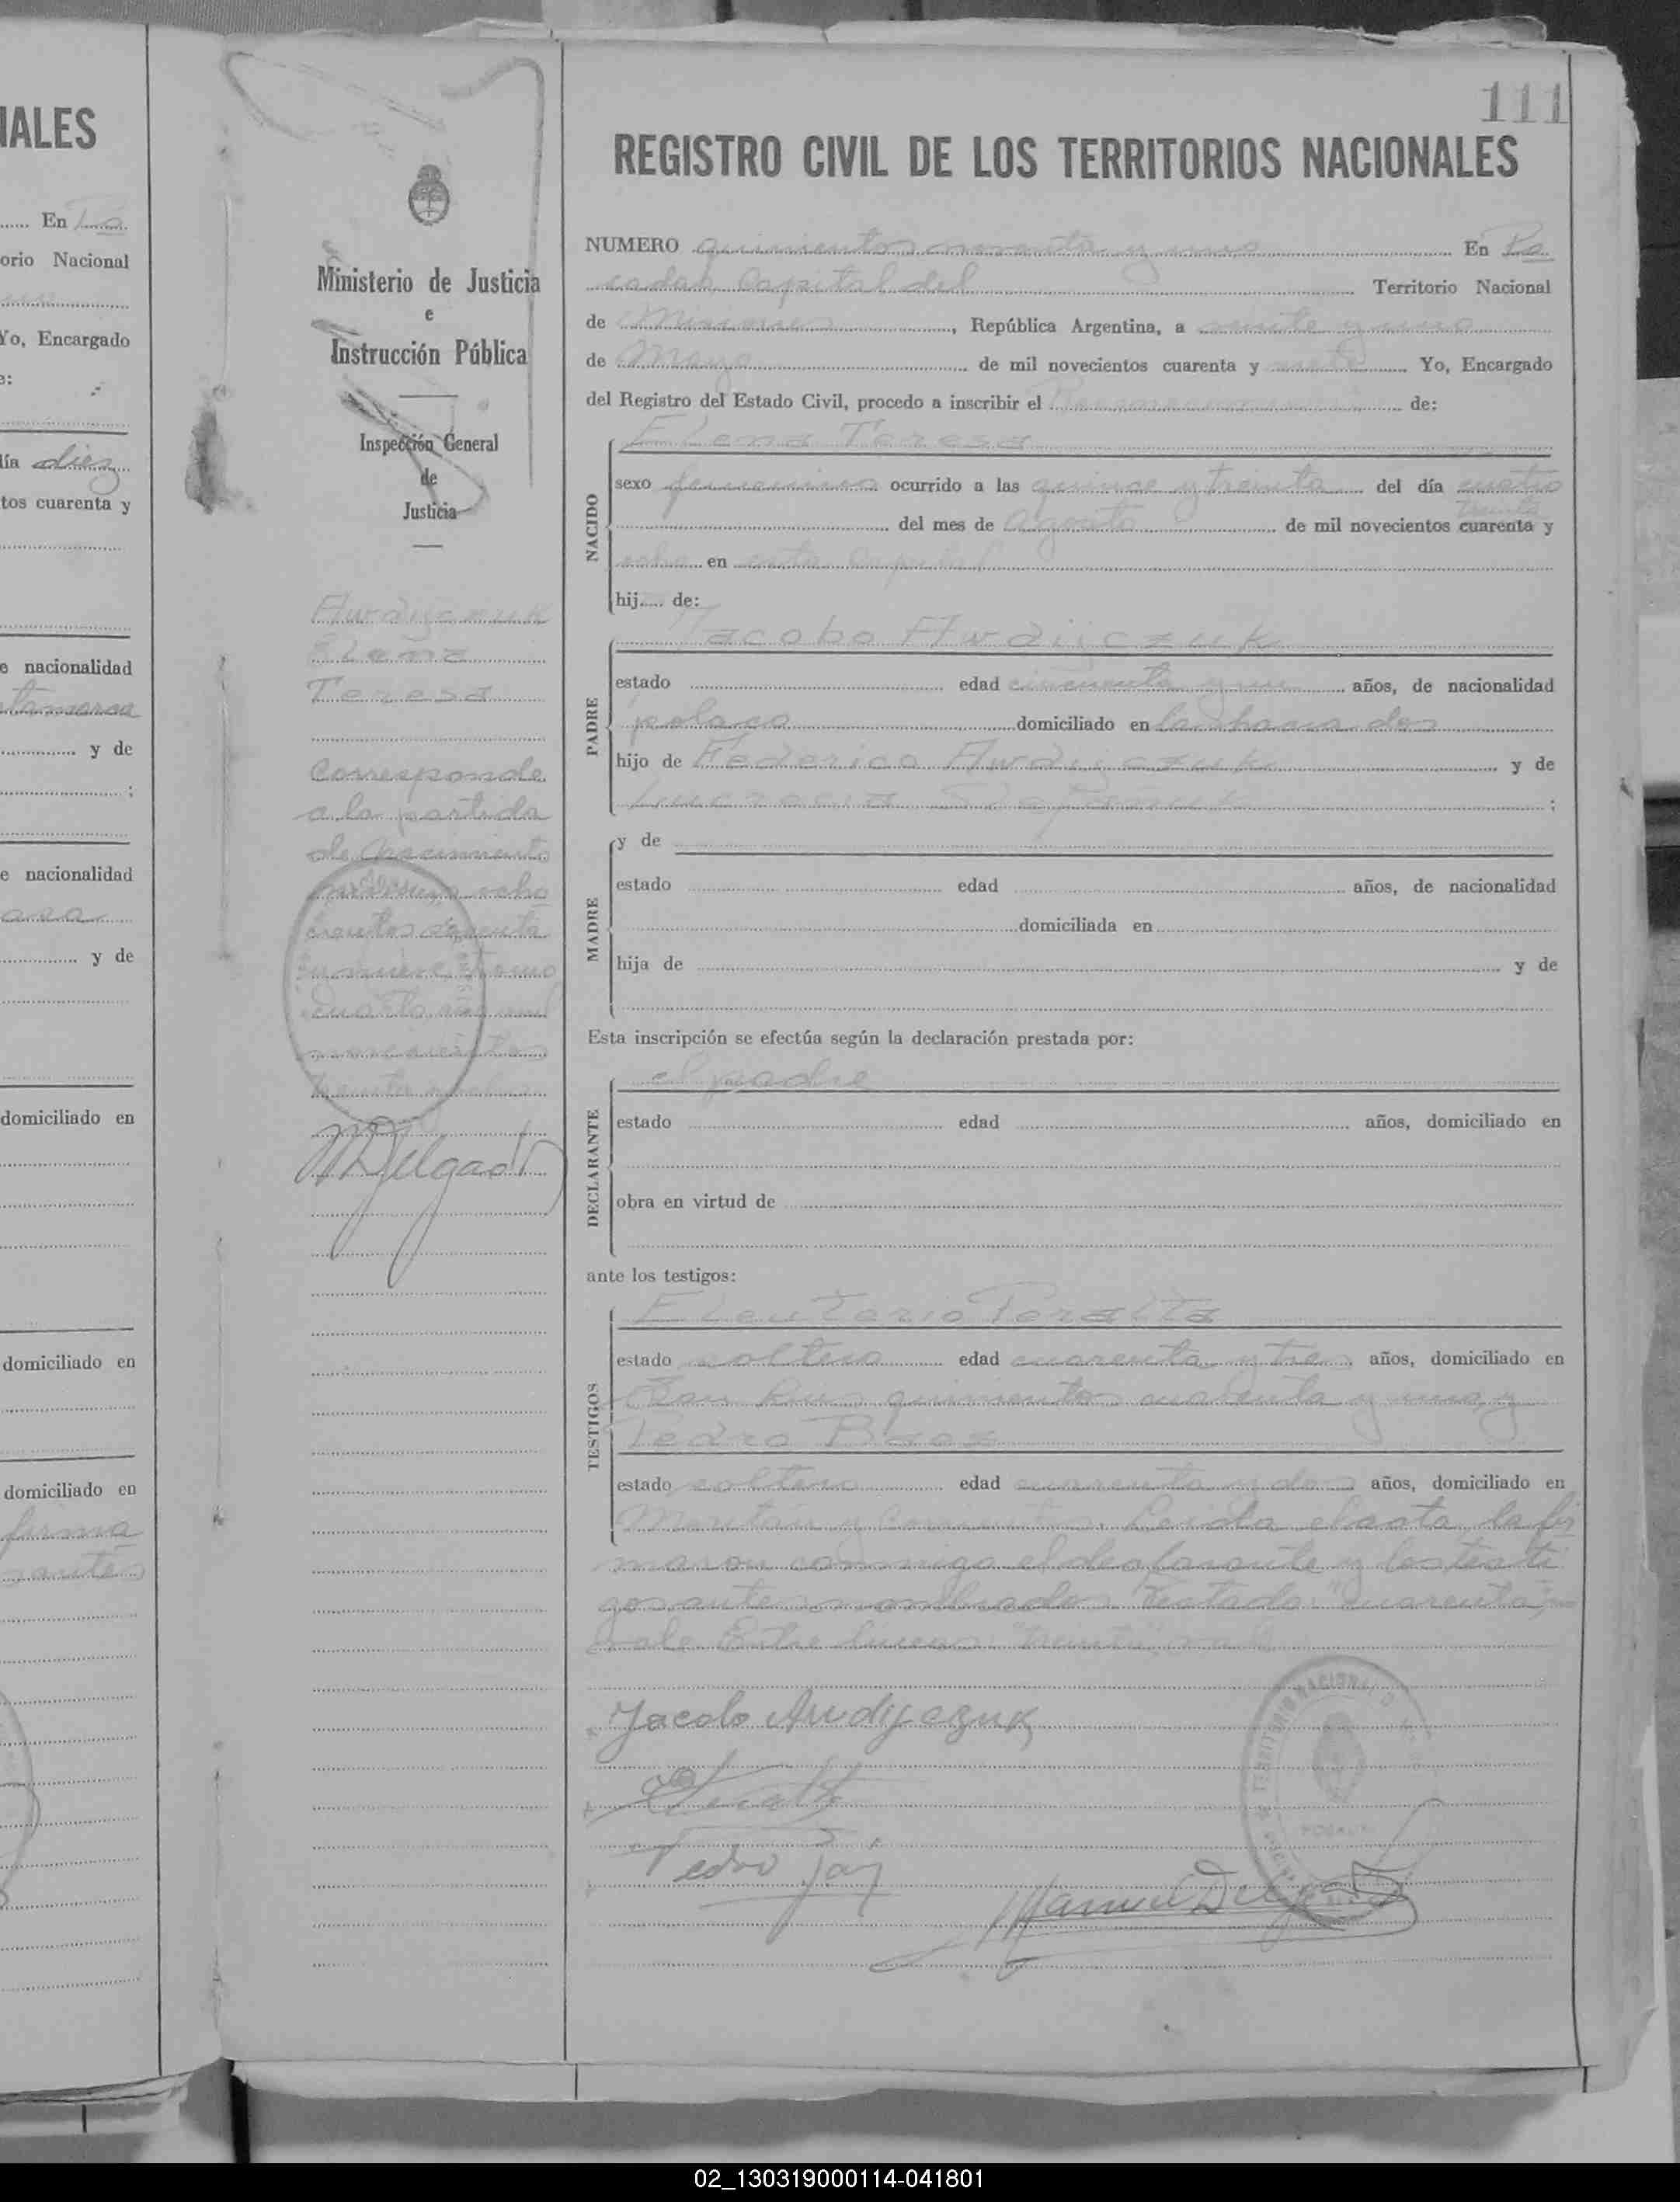 NALES
En Po
orio Nacional
Yo, Encargado
ía diez
tos cuarenta y
e nacionalidad
y de
e nacionalidad
y de
domiciliado en
domiciliado en
domiciliado en
firma
Ministerio de Justicia
e
Instrucción Pública
Inspección General
de
Justicia
Awdijczuk
Elena
Teresa
Corresponde
a la partida
de Nacimiento
ocho
cientos
y nueve tomo
cuarto mil
novecientos
treinta ocho
MDelgado
111
REGISTRO CIVIL DE LOS TERRITORIOS NACIONALES
NUMERO quinientos noventa y uno En Po
sadas Capital del Territorio Nacional
de Misiones, República Argentina, a veinte y uno
de Mayo de mil novecientos cuarenta y siete Yo, Encargado
del Registro del Estado Civil, procedo a inscribir el de:
Elena Teresa
NACIDO
sexo femenino ocurrido a las quince y treinta del día cuatro
treinta
del mes de Agosto de mil novecientos cuarenta y
ocho en esta Capital
hij de:
Jacobo Awdijczuk
PADRE
estado edad cincuenta y un años, de nacionalidad
polaco domiciliado en la chacra dos
hijo de Federico Awdijczuk y de
Lucrecia ;
MADRE
y de
estado edad años, de nacionalidad
domiciliada en
hija de y de
Esta inscripción se efectúa según la declaración prestada por:
el padre
DECLARANTE
estado edad años, domiciliado en
obra en virtud de
ante los testigos:
Eleuterio Peralta
TESTIGOS
estado soltero edad cuarenta y tres años, domiciliado en
San Luis quinientos cuarenta y uno, y
Pedro Baez
estado soltero edad cuarenta y dos años, domiciliado en
Leída el acta, la fir
maron conmigo el declarante y los testi
gos antes nombrados. Testado: "cuarenta", no
vale. Entre líneas: "treinta", vale
Jacobo Awdijczuk
EPeralta
Pedro Baez
Manuel Delgado
02_130319000114-041801